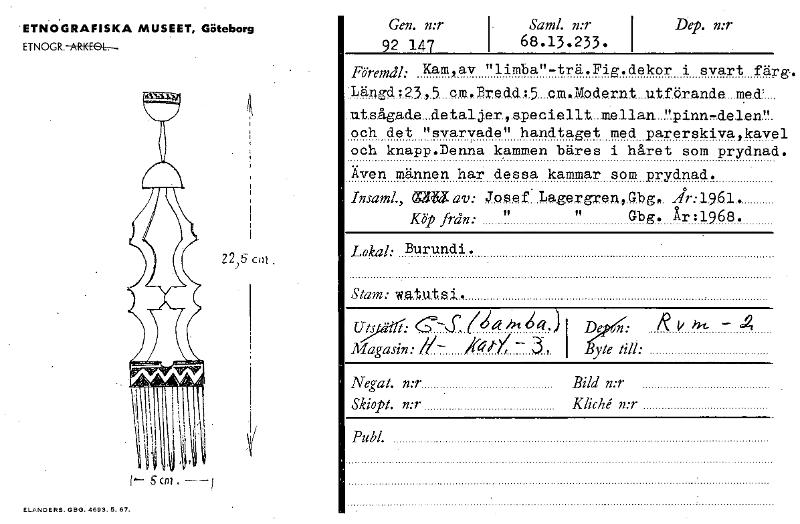 ETNOGRAFISKA MUSEET, Göteborg
ETNOGR. ARKEOL.
22,5 cm.
5 cm.
ELANDERS. GBG. 4693. 5. 67.
Gen. n:r Saml. n:r Dep. n:r
92 147 68.13.233.
Föremål: Kam,av "limba"-trä.Fig.dekor i svart färg.
Längd:23,5 cm.Bredd:5 cm.Modernt utförande med
utsågade detaljer,speciellt mellan "pinn-delen"
och det "svarvade" handtaget med parerskiva,kavel
och knapp.Denna kammen bäres i håret som prydnad.
Även männen har dessa kammar som prydnad.
Insaml., av: Josef Lagergren,Gbg. År:1961.
Köp från: " " Gbg. År:1968.
Lokal: Burundi.
Stam: watutsi.
Utställt: G-S. (bamba.) Depon: Rvm - 2
Magasin: H- Kart. - 3. Byte till:
Negat. n:r Bild n:r
Skiopt. n:r Kliché n:r
Publ.